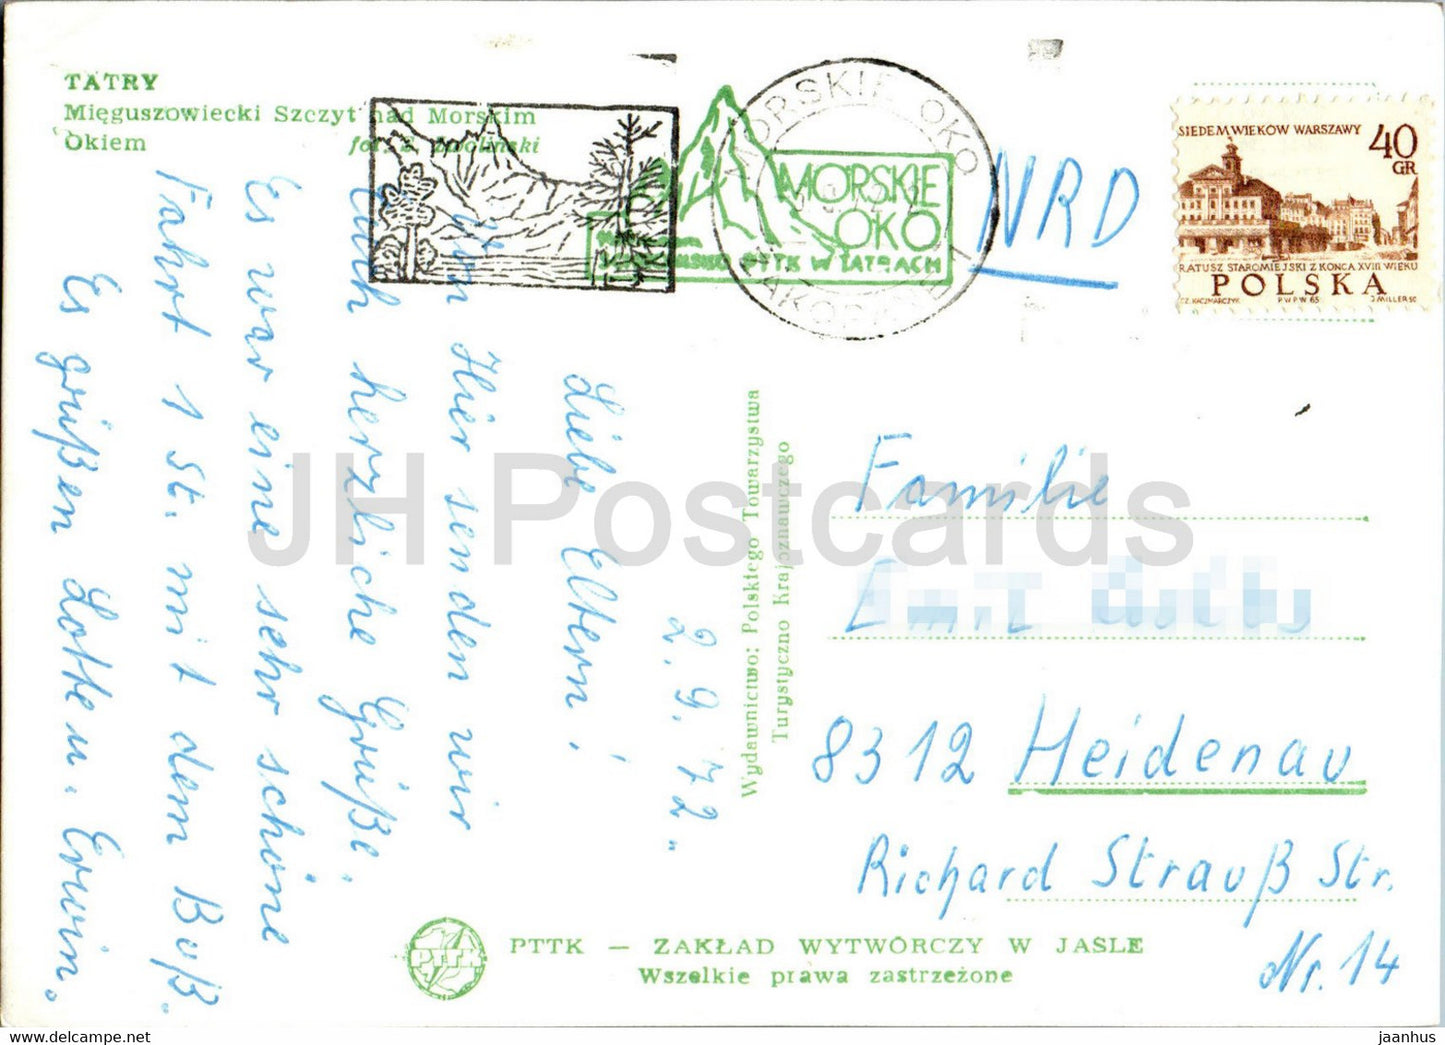 TATRY
Mięguszowiecki Szczyt nad Morskim
Okiem
fot.
MORSKIE OKO
MORSKIE
OKO
PTTK W TATRACH
NRD
SIEDEM WIEKÓW WARSZAWY
40
GR
RATUSZ STAROMIEJSKI Z KOŃCA XVIII WIEKU
POLSKA
CZ. KACZMARCZYK P.W.P.W. 65 J. MILLER SC
2.9.72.
Liebe Eltern!
Hier senden wir
Euch herzliche Grüße.
Es war eine sehr schöne
Fahrt 1 St. mit dem Buß.
Es grüßen Lotte u. Erwin.
Wydawnictwo: Polskiego Towarzystwa
Turystyczno Krajoznawczego
Familie
8312 Heidenau
Richard Strauß Str.
Nr. 14
PTTK
PTTK — ZAKŁAD WYTWÓRCZY W JAŚLE
Wszelkie prawa zastrzeżone
JH Postcards
https://jhpostcards.com
jaanhus